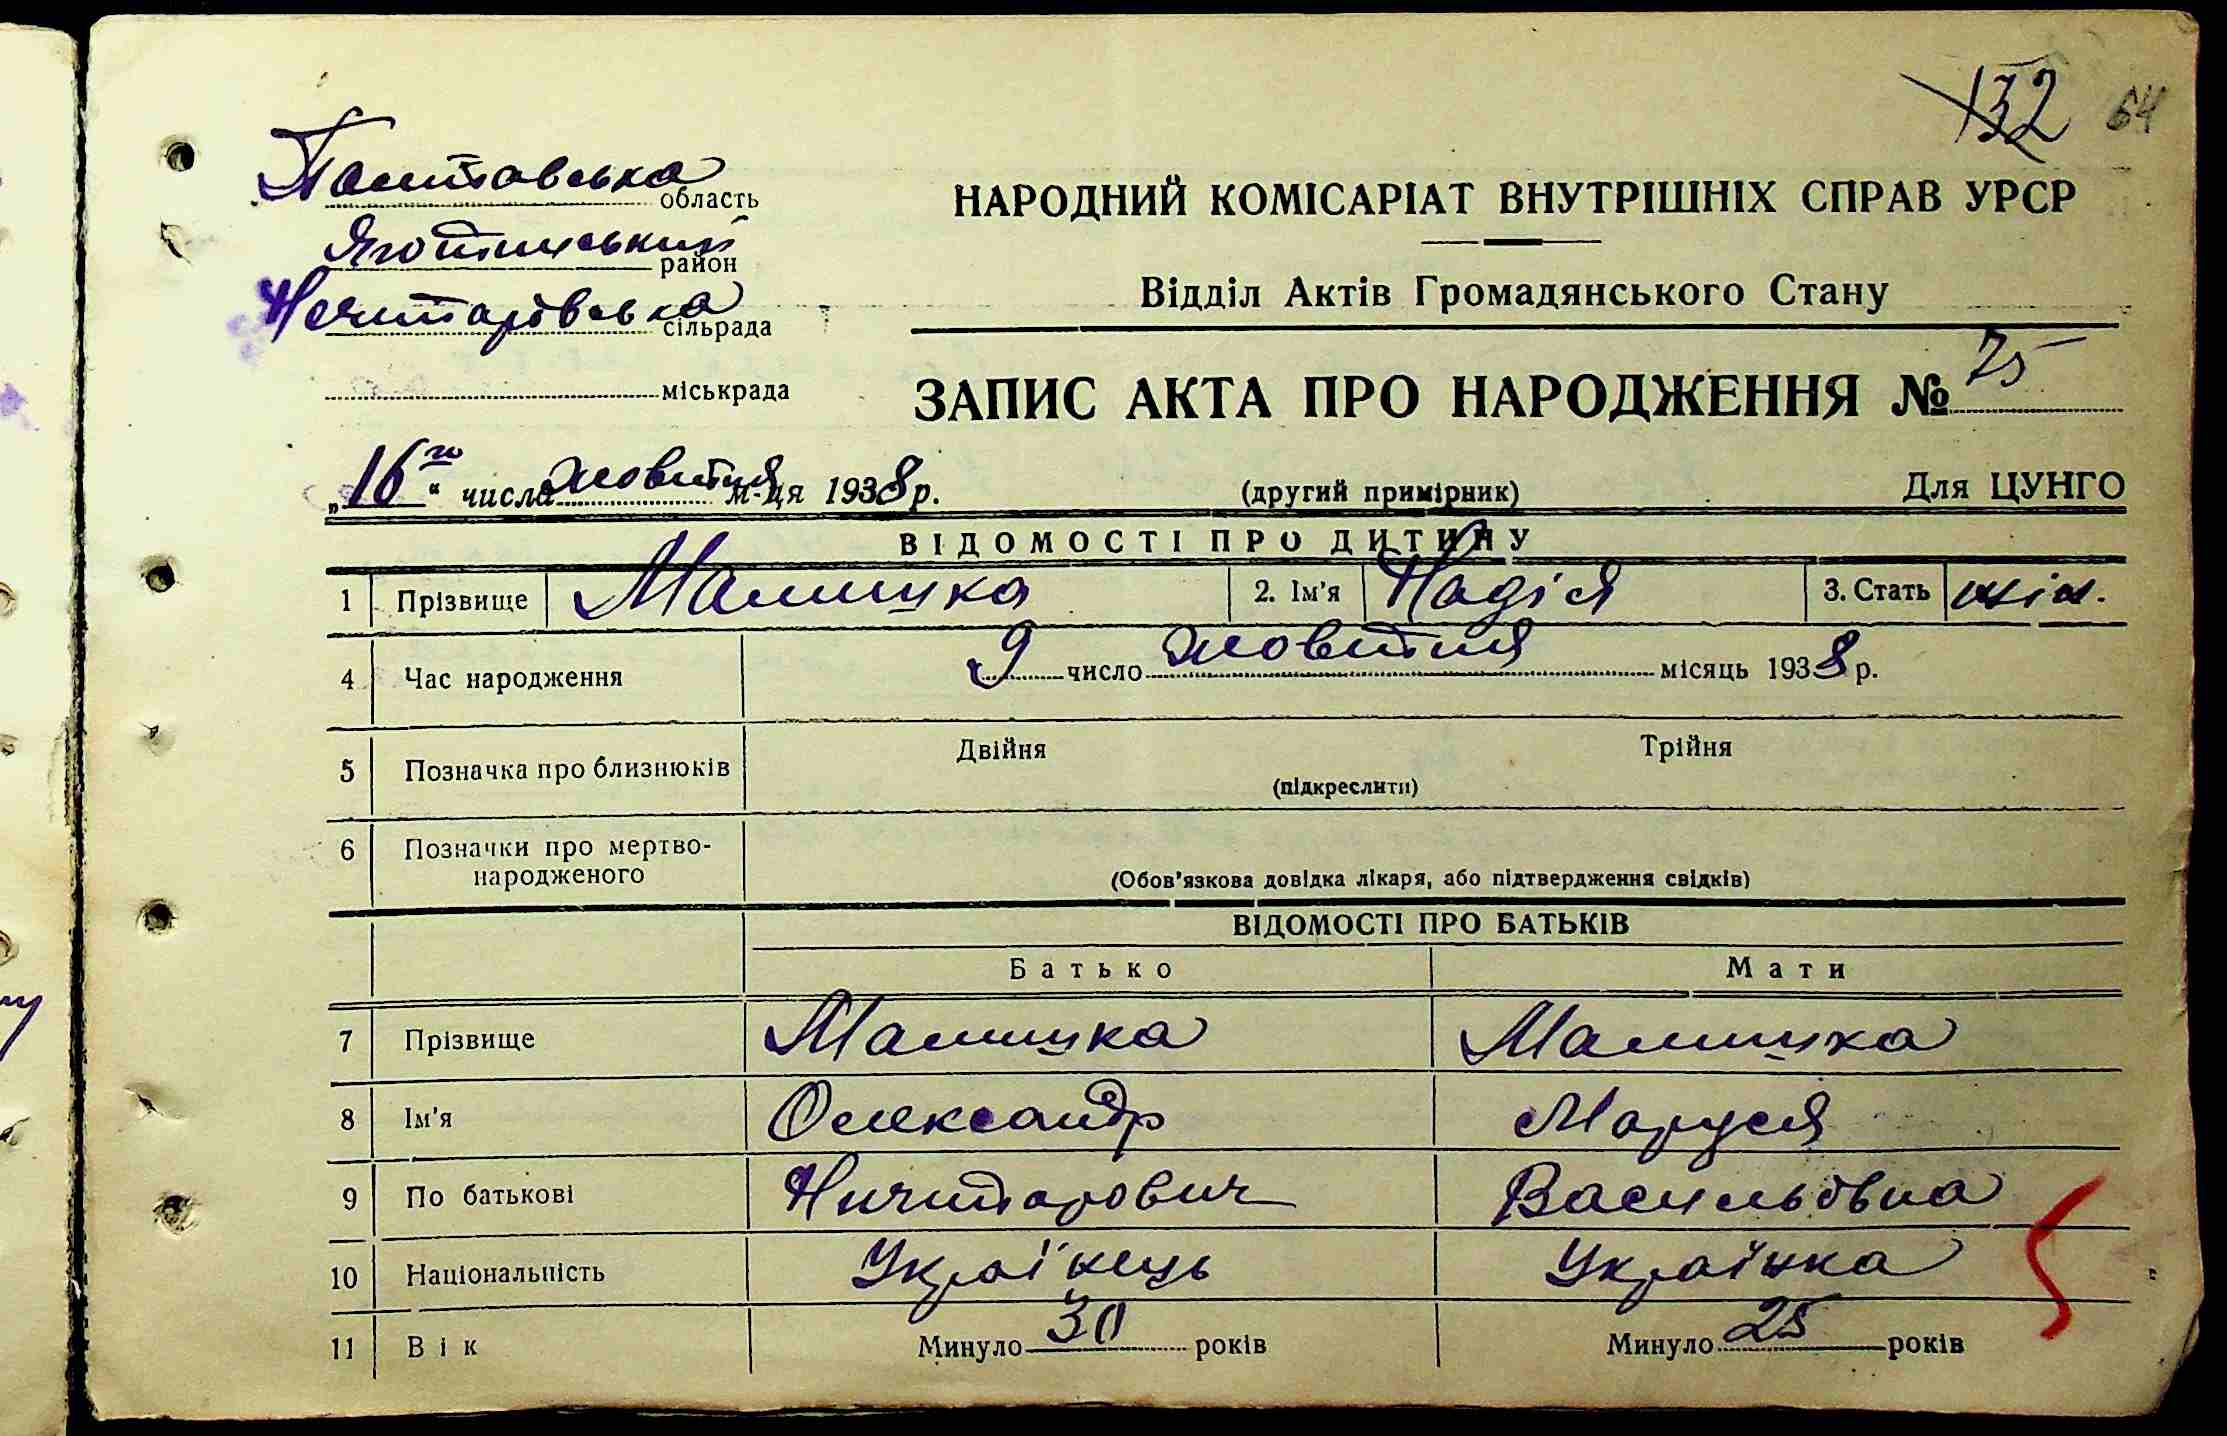 132 64
Полтавська область
Яготинський район
сільрада
міськрада
НАРОДНИЙ КОМІСАРІАТ ВНУТРІШНІХ СПРАВ УРСР
Відділ Актів Громадянського Стану
ЗАПИС АКТА ПРО НАРОДЖЕННЯ № 75
„16го“ числа жовтня м-ця 1938 р. (другий примірник) Для ЦУНГО
ВІДОМОСТІ ПРО ДИТИНУ
1 Прізвище 2. Ім'я Надія 3. Стать жін.
4 Час народження 9 число жовтня місяць 1938 р.
5 Позначка про близнюків Двійня Трійня
(підкреслити)
6 Позначки про мертво-
народженого (Обов'язкова довідка лікаря, або підтвердження свідків)
ВІДОМОСТІ ПРО БАТЬКІВ
Батько Мати
7 Прізвище
8 Ім'я Олександр Маруся
9 По батькові Ничипорович Васильовна
10 Національність Українець Українка
11 Вік Минуло 30 років Минуло 25 років